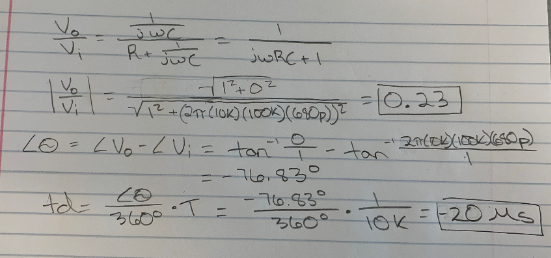 Vo/Vi = (1/jwC)/(R + 1/jwC) = 1/(jwRC + 1)
|Vo/Vi| = √(1² + 0²)/√(1² + (2π(10K)(100K)(680p))²) = 0.23
∠Θ = ∠Vo - ∠Vi = tan⁻¹ 0/1 - tan⁻¹ 2π(10K)(100K)(680p)/1
= -76.83°
td = ∠Θ/360° · T = -76.83°/360° · 1/10K = -20 μs